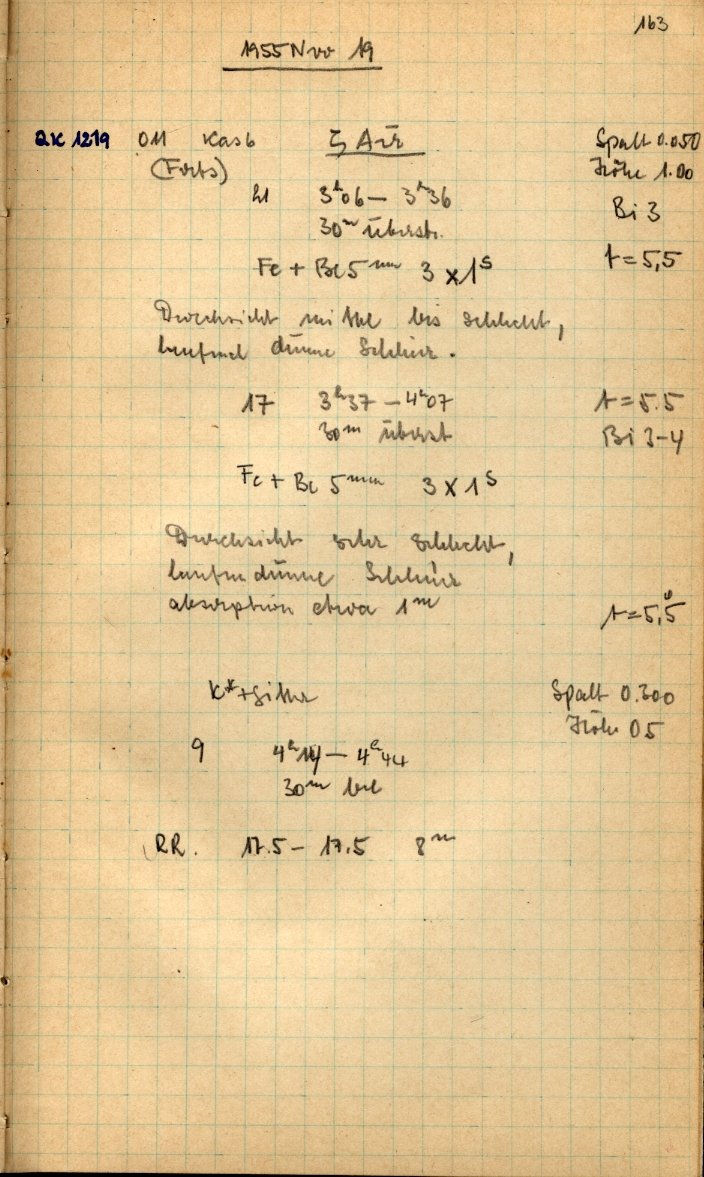 163
1955 Nov 19
QK 1219 O11 Kas b ζ Aur Spalt 0.050
(Forts) Höhe 1.00
21 3ʰ06 – 3ʰ36 Bi 3
30ᵐ überstr.
Fe + Be 5ᵐᵐ 3 x 1ˢ t = 5,5
Durchsicht mittel bis schlecht,
laufend dünne Schleier.
17 3ʰ37 – 4ʰ07 t = 5.5
30ᵐ überst Bi 3-4
Fe + Be 5ᵐᵐ 3 x 1ˢ
Durchsicht sehr schlecht,
laufen dünne Schleier
absorption etwa 1ᵐ
t = 5,5
K* + Gitter Spalt 0.300
Höhe 05
9 4ʰ14 – 4ʰ44
30ᵐ bel
RR. 17.5 – 17.5 8ᵐ